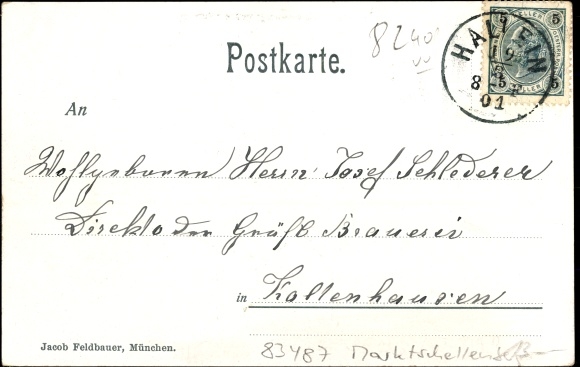 Postkarte.
8240
HALLEIN
5 5
HELLER
5 5
8
01
An
Wohlgeboren Herrn Josef Schlederer
Direktor der Gräfl Brauerei
in Kaltenhausen
Jacob Feldbauer, München.
83487 Marktschellenbg